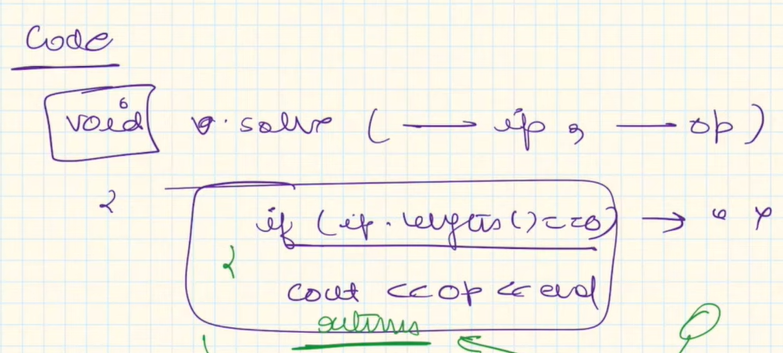 Code
void solve ( — ip , — op )
{
if (ip.length()==0) → "
{
cout << op << end
return;